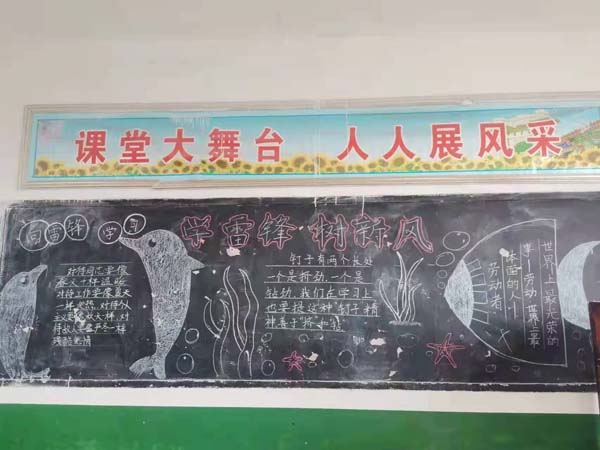 课堂大舞台 人人展风采
向雷锋 学习
学雷锋 树新风
对待同志要像
春天一样温暖
对待工作要像夏天
一样火热，对待个
主义要像
待敌人要像严冬一样
残酷无情
钉子有两个长处
一个是挤劲，一个是
钻劲，我们在学习上
也要提这种钉子精
神善于挤和钻
世界上最光荣的
事——劳动，世界上最
体面的人——
劳动者